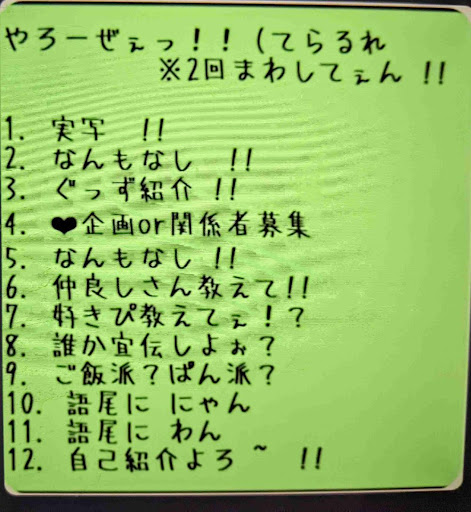 やろーぜぇっ!!(てらるれ
※2回まわしてぇん !!
1. 実写 !!
2. なんもなし !!
3. ぐっず紹介 !!
4. ❤企画or関係者募集
5. なんもなし !!
6. 仲良しさん教えて!!
7. 好きぴ教えてぇ!?
8. 誰か宣伝しよぉ?
9. ご飯派?ぱん派?
10. 語尾に にゃん
11. 語尾に わん
12. 自己紹介よろ ~ !!